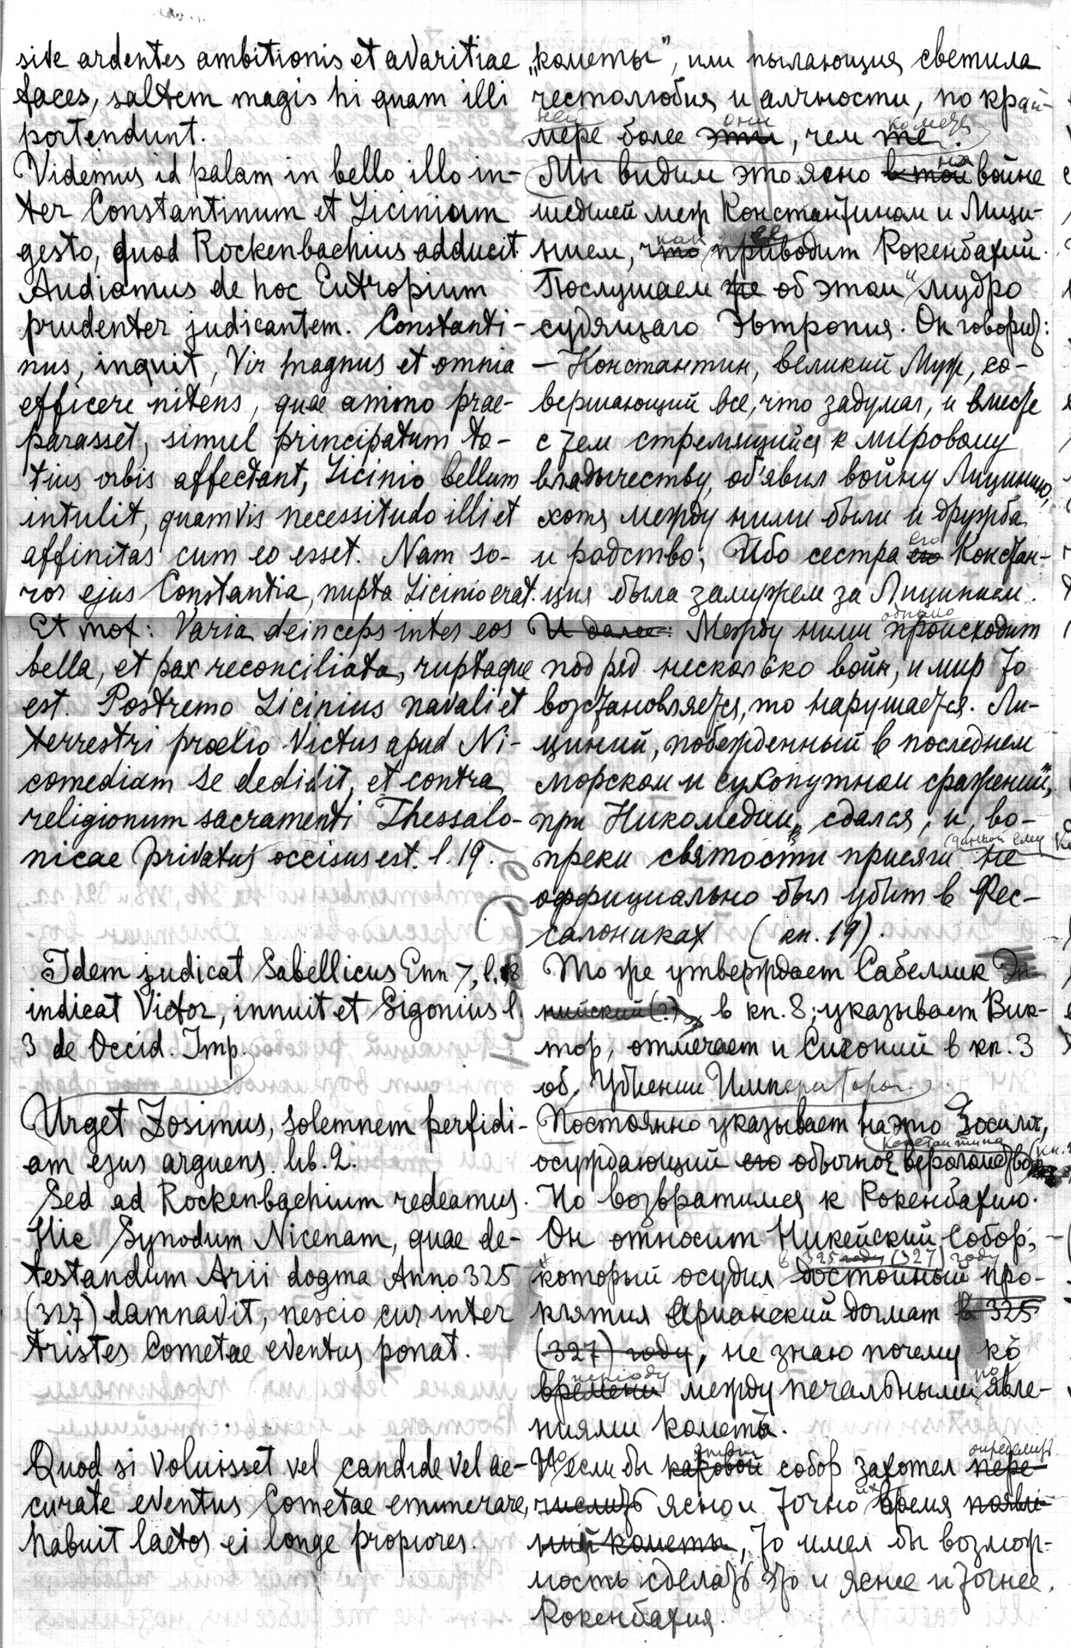 site ardentes ambitionis et avaritiae
faces, saltem magis hi quam illi
portendunt.
Videmus id palam in bello illo in-
ter Constantinum et Licinium
gesto, quod Rockenbachius adducit
Audiamus de hoc Eutropium
prudenter judicantem. Constanti-
nus, inquit, Vir magnus et omnia
efficere nitens, quae animo prae-
parasset, simul principatum to-
tius orbis affectant, Licinio bellum
intulit, quamvis necessitudo illi et
affinitas cum eo esset. Nam so-
ror ejus Constantia, nupta Licinio erat.
Et mox: Varia deinceps inter eos
bella, et pax reconciliata, ruptaque
est. Postremo Licinius navali et
terrestri proelio victus apud Ni-
comediam se dedidit, et contra
religionum sacramenti Thessalo-
nicae privatus occisus est. l. 19.
Idem judicat Sabellicus Enn 7, l. 8
indicat Victor, innuit et Sigonius l.
3 de Occid. Imp.
Urget Zosimus, solemnem perfidi-
am ejus arguens. lib. 2.
Sed ad Rockenbachium redeamus.
Hic Synodum Nicenam, quae de-
testandum Arii dogma Anno 325
(327) damnavit, nescio cur inter
tristes Cometae eventus ponat.
Quod si voluisset vel candide vel ac-
curate eventus Cometae enumerare,
habuit laetos ei longe propiores.
„кометы", или пылающия светила
честолюбия и алчности, по край-
ней они кометы
мере более эти, чем те.
на
Мы видим это ясно в той войне
шедшей меж Константином и Лици-
как ее
нием, что приводит Рокенбахий.
Послушаем же об этом мудро
судящаго Эвтропия. Он говорит:
— Константин, великий Муж, со-
вершающий все, что задумал, и вместе
с тем стремящийся к мировому
владычеству, об'явил войну Лицинию,
хотя между ними были и дружба
его
и родство; Ибо сестра его Констан-
ция была замужем за Лицинием.
однако
И далее: Между ними происходит
подряд несколько войн, и мир то
возстановляется, то нарушается. Ли-
циний, побежденный в последнем
морском и сухопутном сражении,
при Никомедии, сдался, и, во-
данной ему
преки святости присяги не
оффициально был убит в Фес-
салониках (кн. 19).
То же утверждает Сабеллик Эн-
нийский (?), в кн. 8; указывает Вик-
тор, отмечает и Сигоний в кн. 3
об Убиении Императоров.
Постоянно указывает на это Зосима,
Константина (кн.
осуждающий его обычное вероломство
Но возвратимся к Рокенбахию.
Он относит Никейский Собор,
в 325 году (327) году
который осудил достойный про-
клятия Арианский догмат в 325
(327) году, не знаю почему ко
периоду
времени между печальными явле-
ниями кометы.
этот определить
И если бы каковой собор захотел пере-
их
числить ясно и точно время появле-
ний кометы, то имел бы возмож-
ность сделать это и яснее и точнее
Рокенбахия.